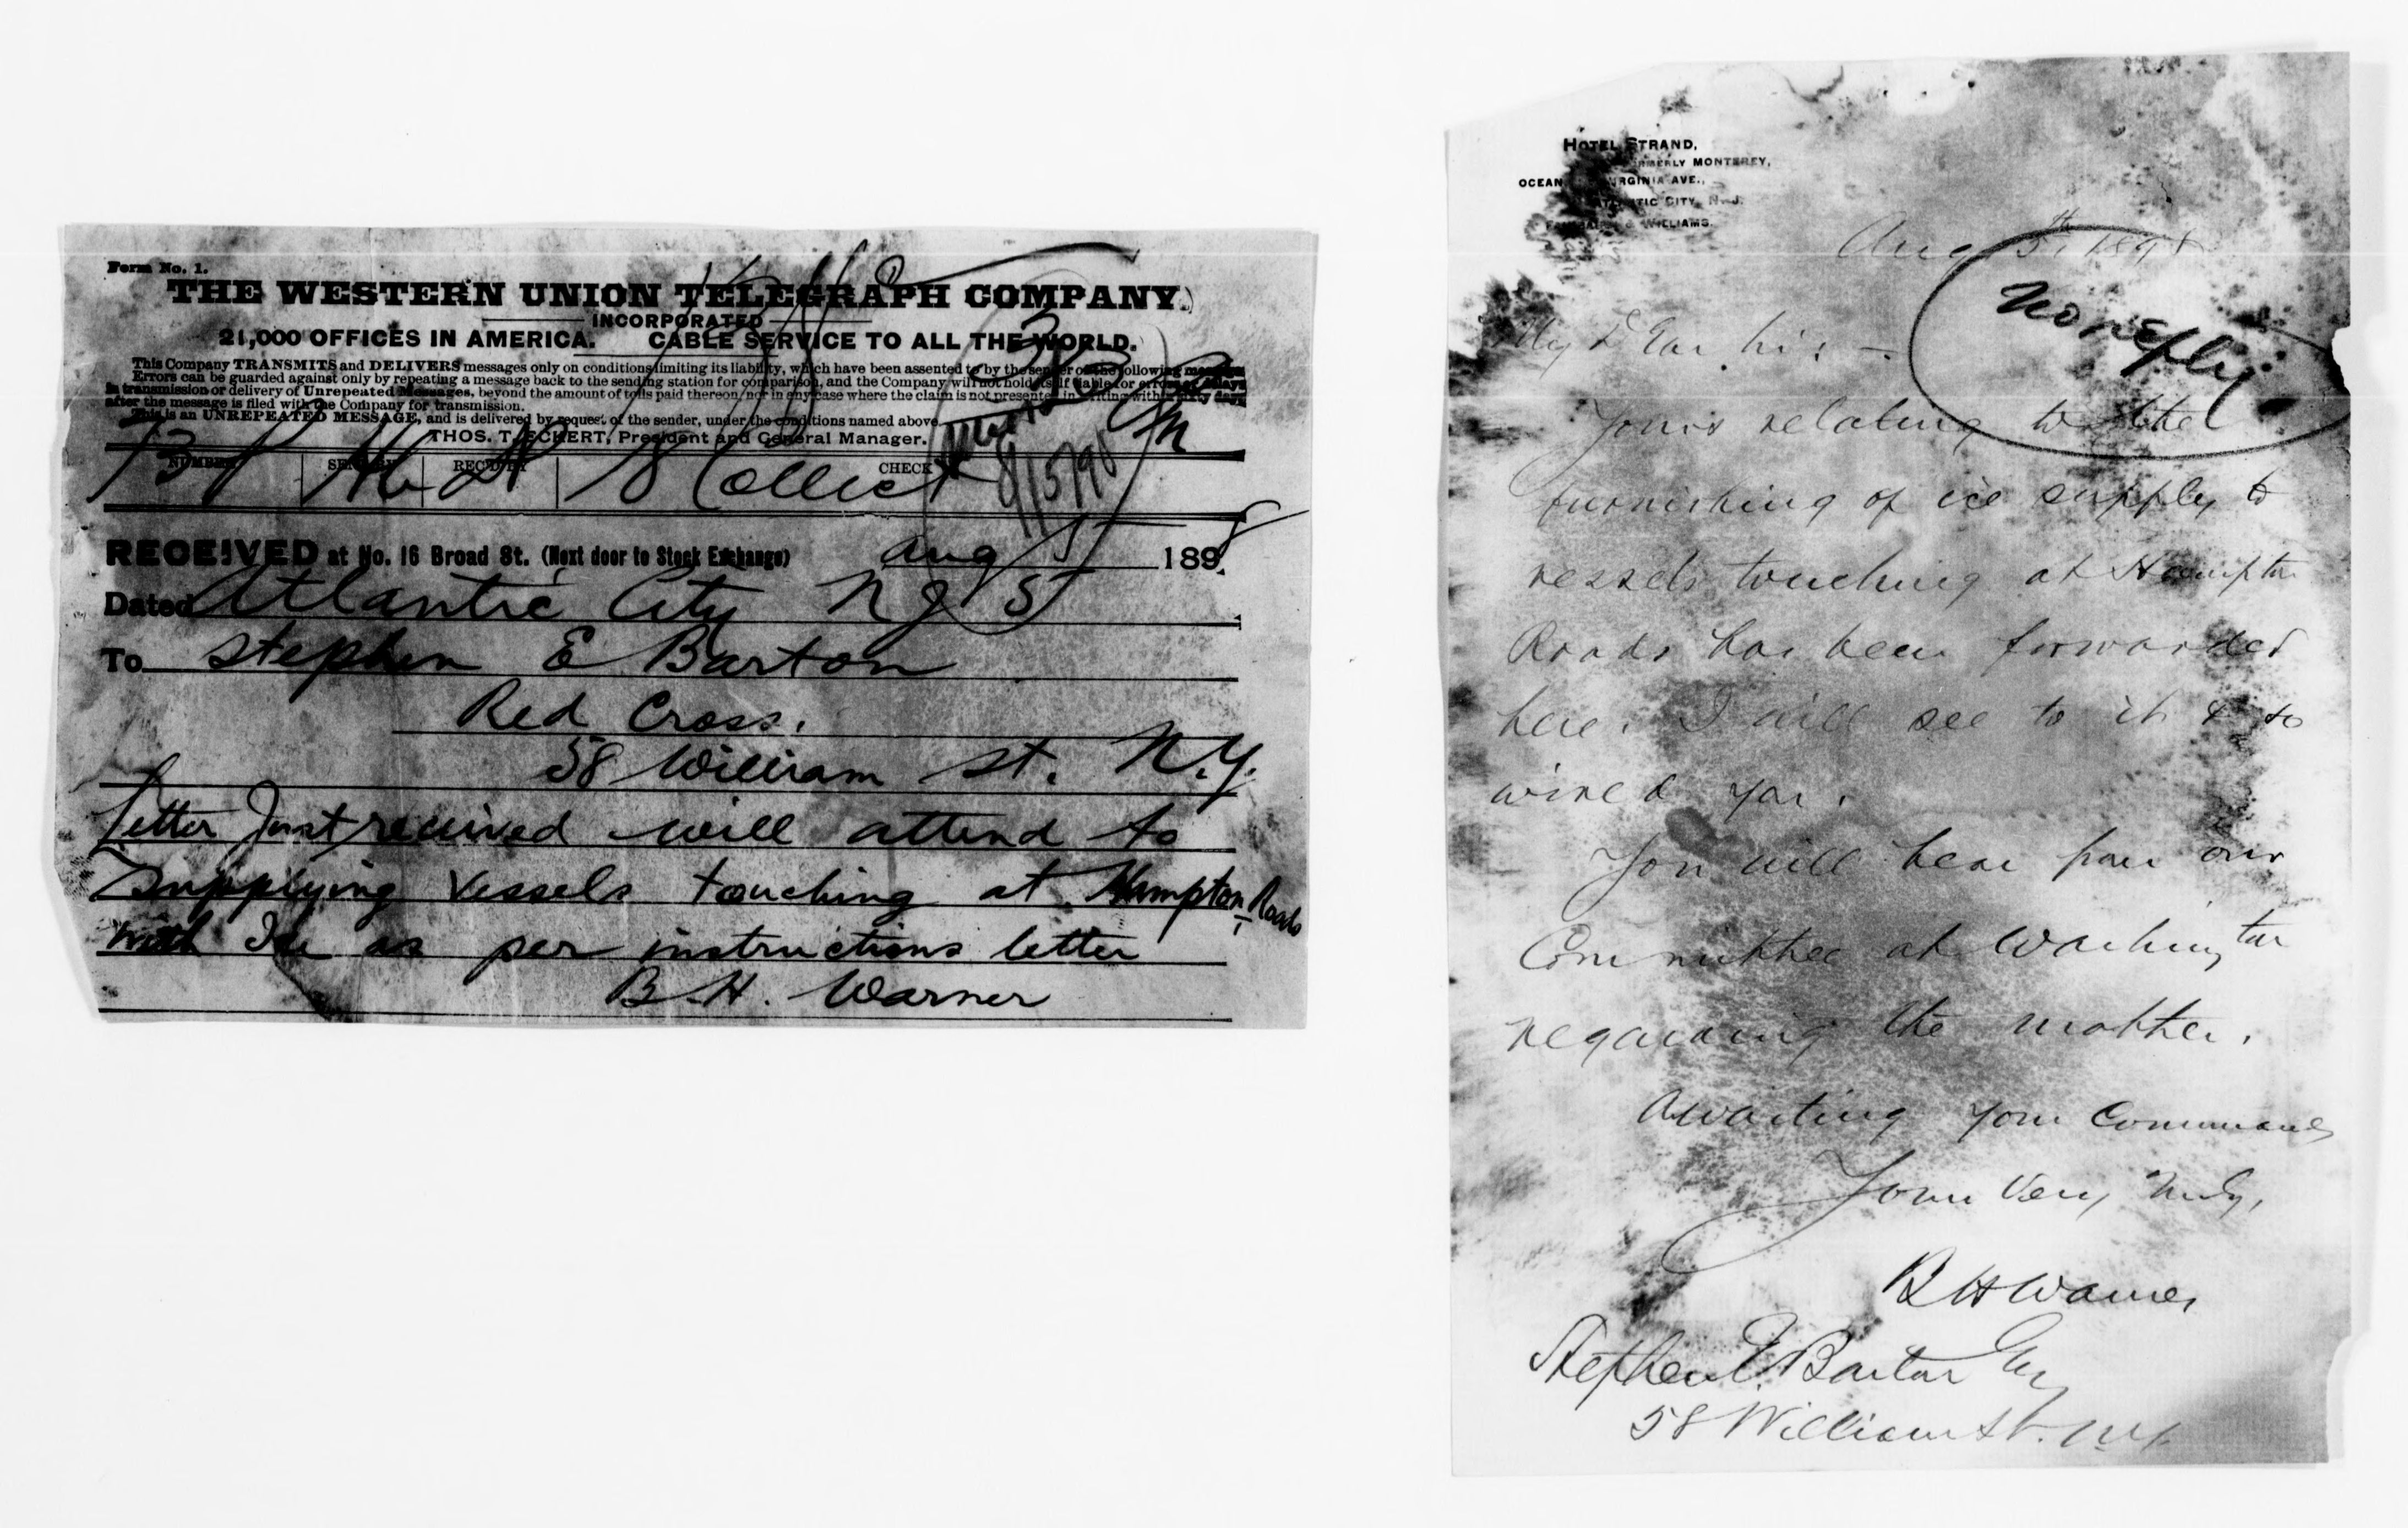 Form No. 1.
THE WESTERN UNION TELEGRAPH COMPANY.
INCORPORATED
21,000 OFFICES IN AMERICA. CABLE SERVICE TO ALL THE WORLD.
This Company TRANSMITS and DELIVERS messages only on conditions limiting its liability, which have been assented to by the sender of the following message
Errors can be guarded against only by repeating a message back to the sending station for comparison, and the Company will not hold itself liable for errors or delays
in transmission or delivery of Unrepeated Messages, beyond the amount of tolls paid thereon, nor in any case where the claim is not presented in writing within sixty days
after the message is filed with the Company for transmission.
This is an UNREPEATED MESSAGE, and is delivered by request of the sender, under the conditions named above.
THOS. T. ECKERT, President and General Manager.
NUMBER SENT BY REC'D BY CHECK
18 Collect
8/5/98
RECEIVED at No. 16 Broad St. (Next door to Stock Exchange) Aug 5 1898
Dated Atlantic City NJ 5
To Stephen E Barton
Red Cross.
58 William St. N.Y.
Letter Just received will attend to
Supplying Vessels touching at Hampton Roads
with Ice as per instructions letter
B.H. Warner
HOTEL STRAND,
FORMERLY MONTEREY,
OCEAN VIRGINIA AVE.,
ATLANTIC CITY, N.J.
& WILLIAMS.
Aug 5th 1898
No reply
My Dear Sir: —
Yours relating to the
furnishing of ice supply to
vessels touching at Hampton
Roads has been forwarded
here. I will see to it & so
wired you.
You will hear from our
Committee at Washington
regarding the matter.
Awaiting your Commands
Yours Very Truly,
B H Warner
Stephen E. Barton Esq
58 William St. N.Y.